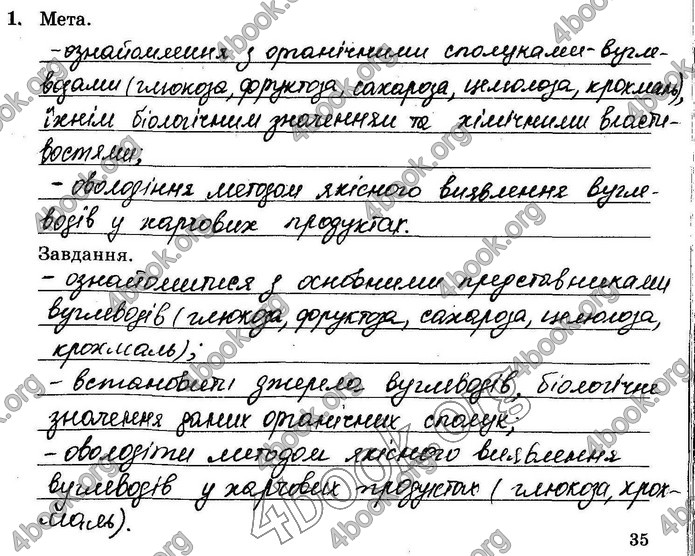 1. Мета.
- ознайомлення з органічними сполуками-вугле-
водами (глюкоза, фруктоза, сахароза, целюлоза, крохмаль),
їхнім біологічним значенням та хімічними власти-
востями;
- оволодіння методом якісного виявлення вугле-
водів у харчових продуктах.
Завдання.
- ознайомитися з основними представниками
вуглеводів (глюкоза, фруктоза, сахароза, целюлоза,
крохмаль);
- встановити джерела вуглеводів, біологічне
значення даних органічних сполук;
- оволодіти методом якісного виявлення
вуглеводів у харчових продуктах (глюкоза, крох-
маль).
35
4book.org